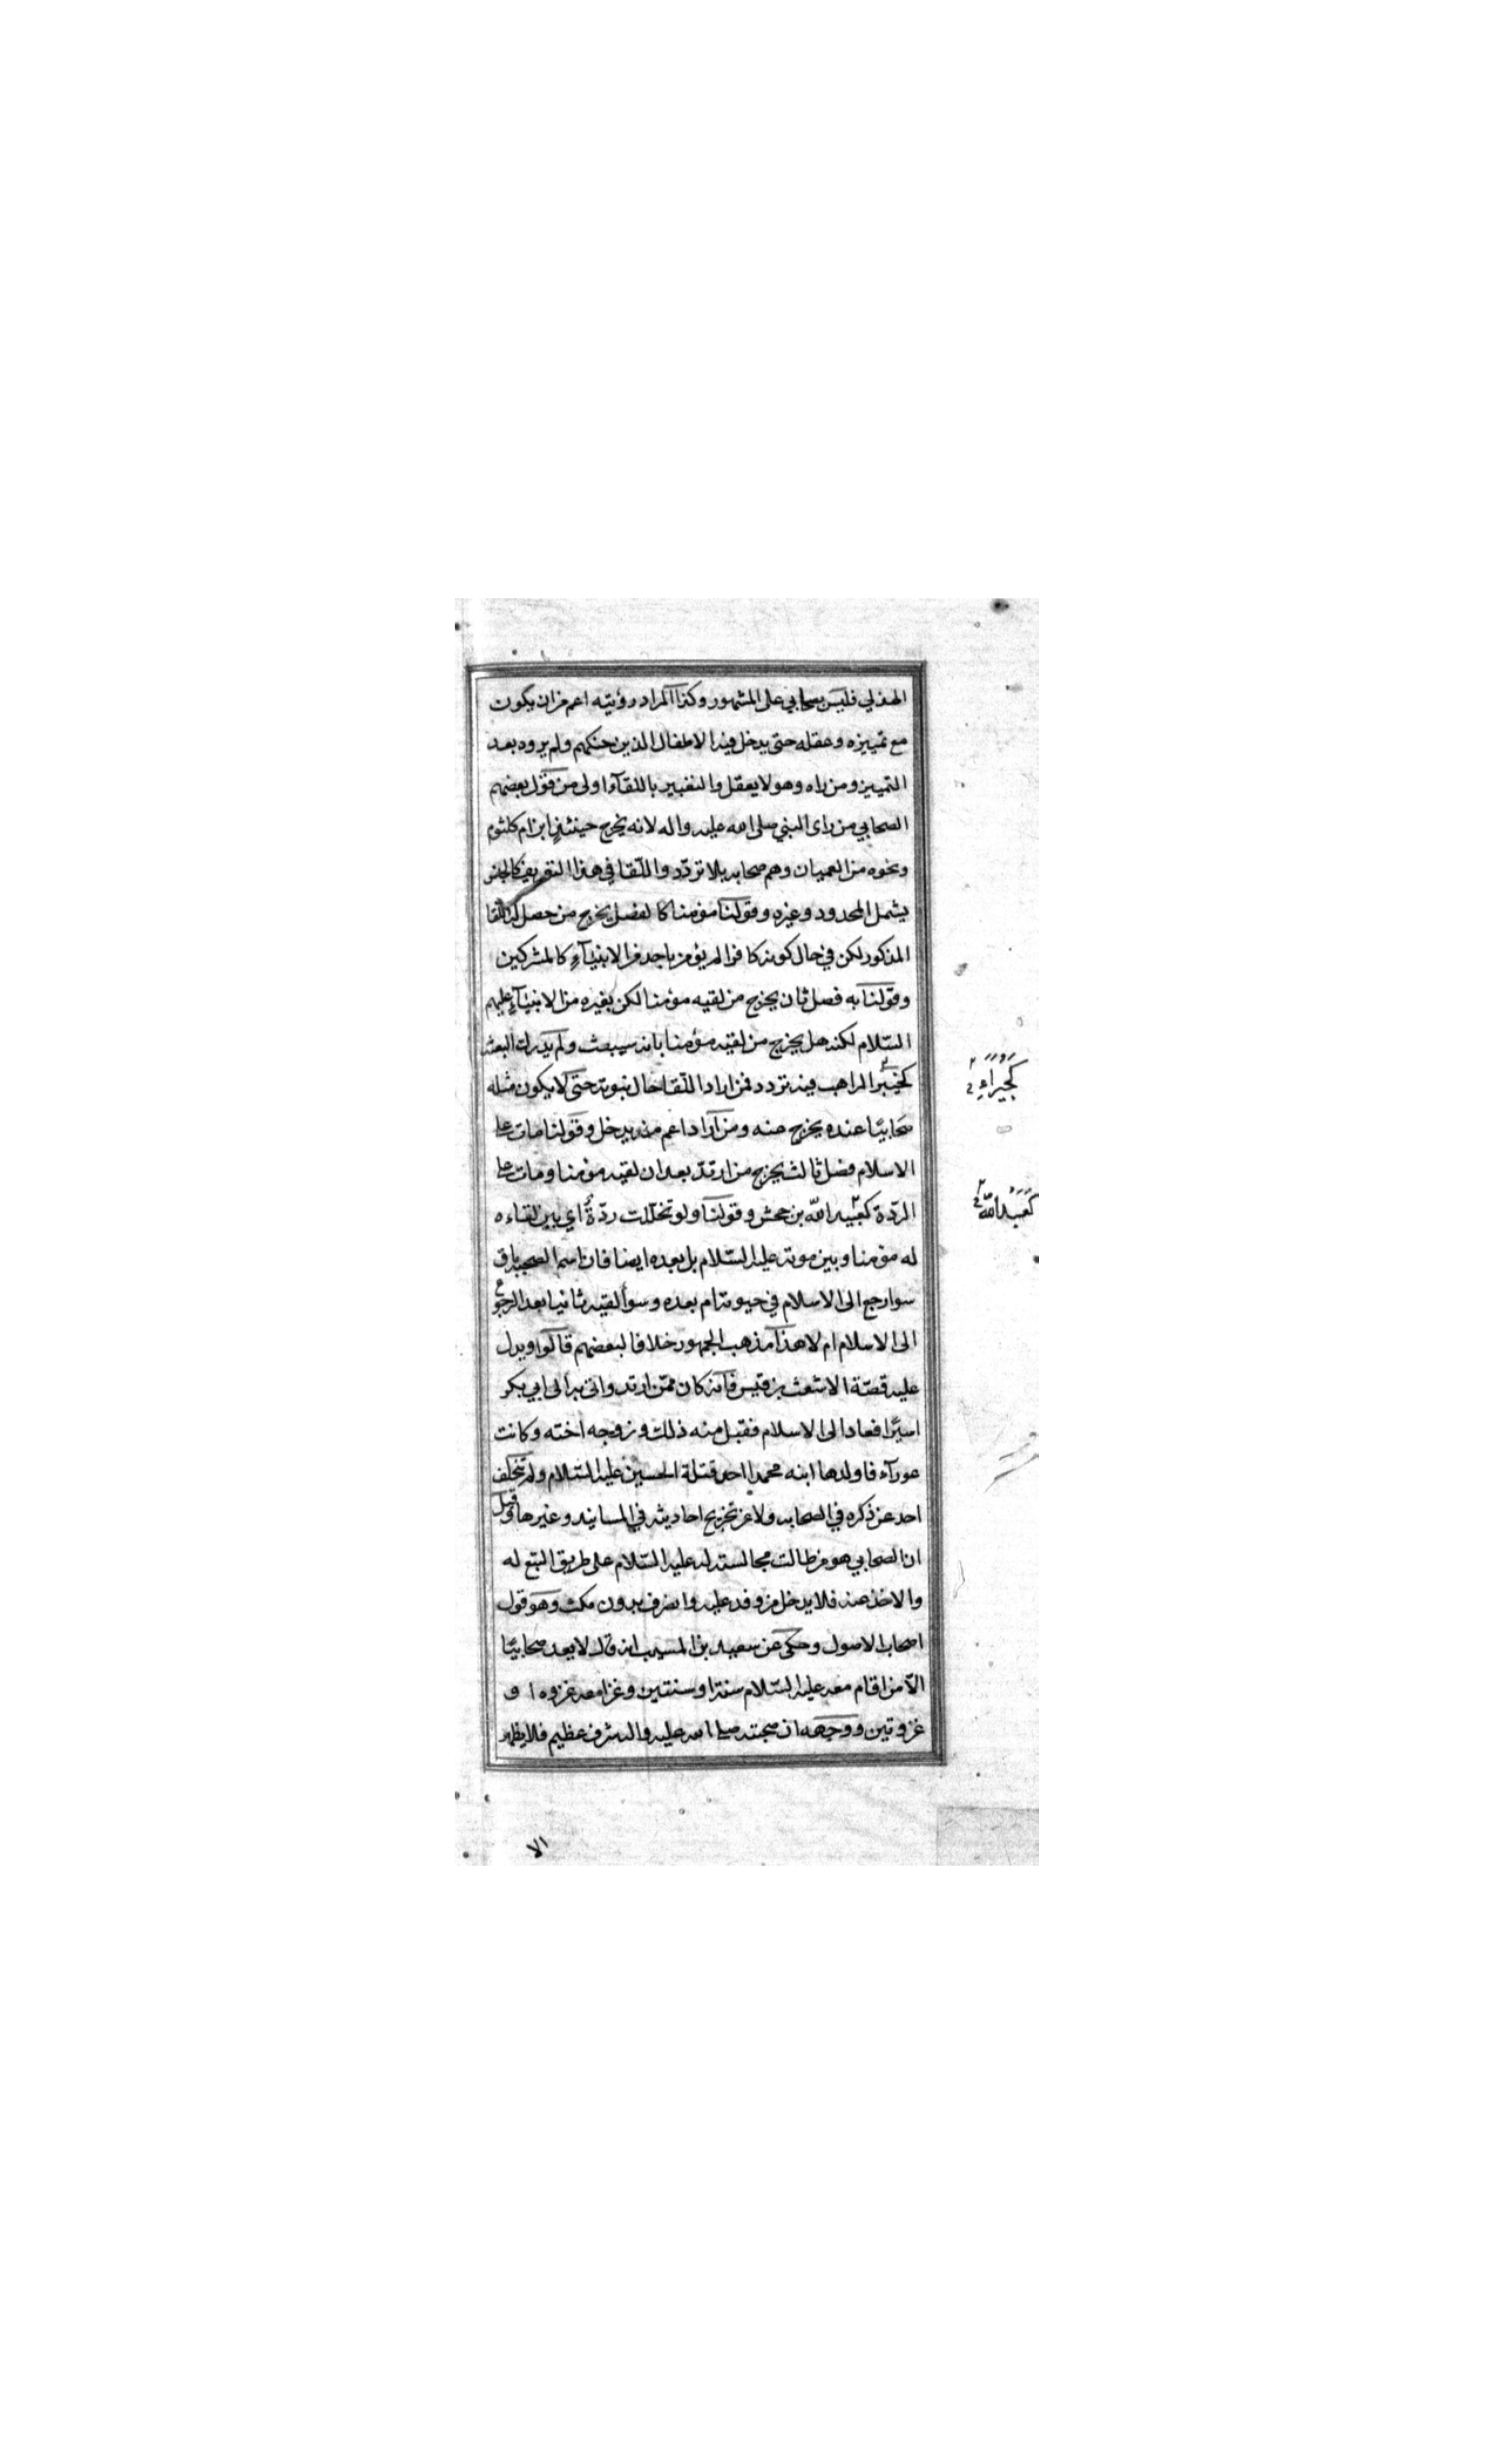 الهذلي فليس بصحابي على المشهور وكذا المراد رؤيته اعم من ان يكون
مع تمييزه وعقله حتى يدخل فيه الاطفال الذين حنكهم ولم يروه بعد
التمييز ومن راه وهو لا يعقل والتعبير باللقآء اولى من قول بعضهم
الصحابي من راى النبي صلى الله عليه واله لانه يخرج حينئذٍ ابن ام كلثوم
ونحوه من العميان وهم صحابه بلا تردّد واللّقا في هذا التعريف كالجنس
يشمل المحدود وغيره وقولنا مؤمنا كالفصل يخرج من حصل له اللقا
المذكور لكن في حال كونه كافرا لم يؤمن باحد من الانبيآءِ كالمشركين
وقولنا به فصل ثان يخرج من لقيه مؤمنا لكن بغيره من الانبيآءِ عليهم
السّلام لكنه هل يخرج من لقيه مؤمنا بانه سيبعث ولم يدرك البعثه
كخيبر الراهب فيه تردد فمن اراد اللّقا حال نبوته حتى لا يكون مثله
صحابيًا عنده يخرج عنه ومن اراد اعم منه يدخل وقولنا مات على
الاسلام فصل ثالث يخرج من ارتدّ بعد ان لقيه مؤمنا ومات على
الردّة كعبيد الله بن جحش وقولنا ولو تخلّلت ردّةٌ اي بين لقاءه
له مؤمنا وبين موته عليه السّلام بل بعده ايضا فان اسم الصحبه باق
سوا رجع الى الاسلام في حيوته ام بعده وسوأ لقيه ثانيا بعد الرجوع
الى الاسلام ام لا هذا مذهب الجمهور خلافا لبعضهم قالوا ويدل
عليه قصّة الاشعث بن قيس فانه كان ممّن ارتد واتى به الى ابي بكر
اسيرًا فعاد الى الاسلام فقبل منه ذلك وزوجه اخته وكانت
عورآء فاولدها ابنه محمدا احد قتلة الحسين عليه السّلام ولم يتخلف
احد عن ذكره في الصحابه ولا عن تخريج احاديثه في المسانيد وغيرها وقيل
ان الصحابي هو من طالت مجالسته له عليه السّلام على طريق التبع له
والاخذ عنه فلا يدخل من وفد عليه وانصرف بدون مكث وهو قول
اصحاب الاصول وحكى عن سعيد بن المسيب انه قال لا يعد صحابيًا
الّا من اقام معه عليه السّلام سنة او سنتين وغزا معه غزوه او
غزوتين ووجهه ان صحبته صلى الله عليه واله شرف عظيم فلا يظهر
كبحيراءِ
كعبد الله
الا